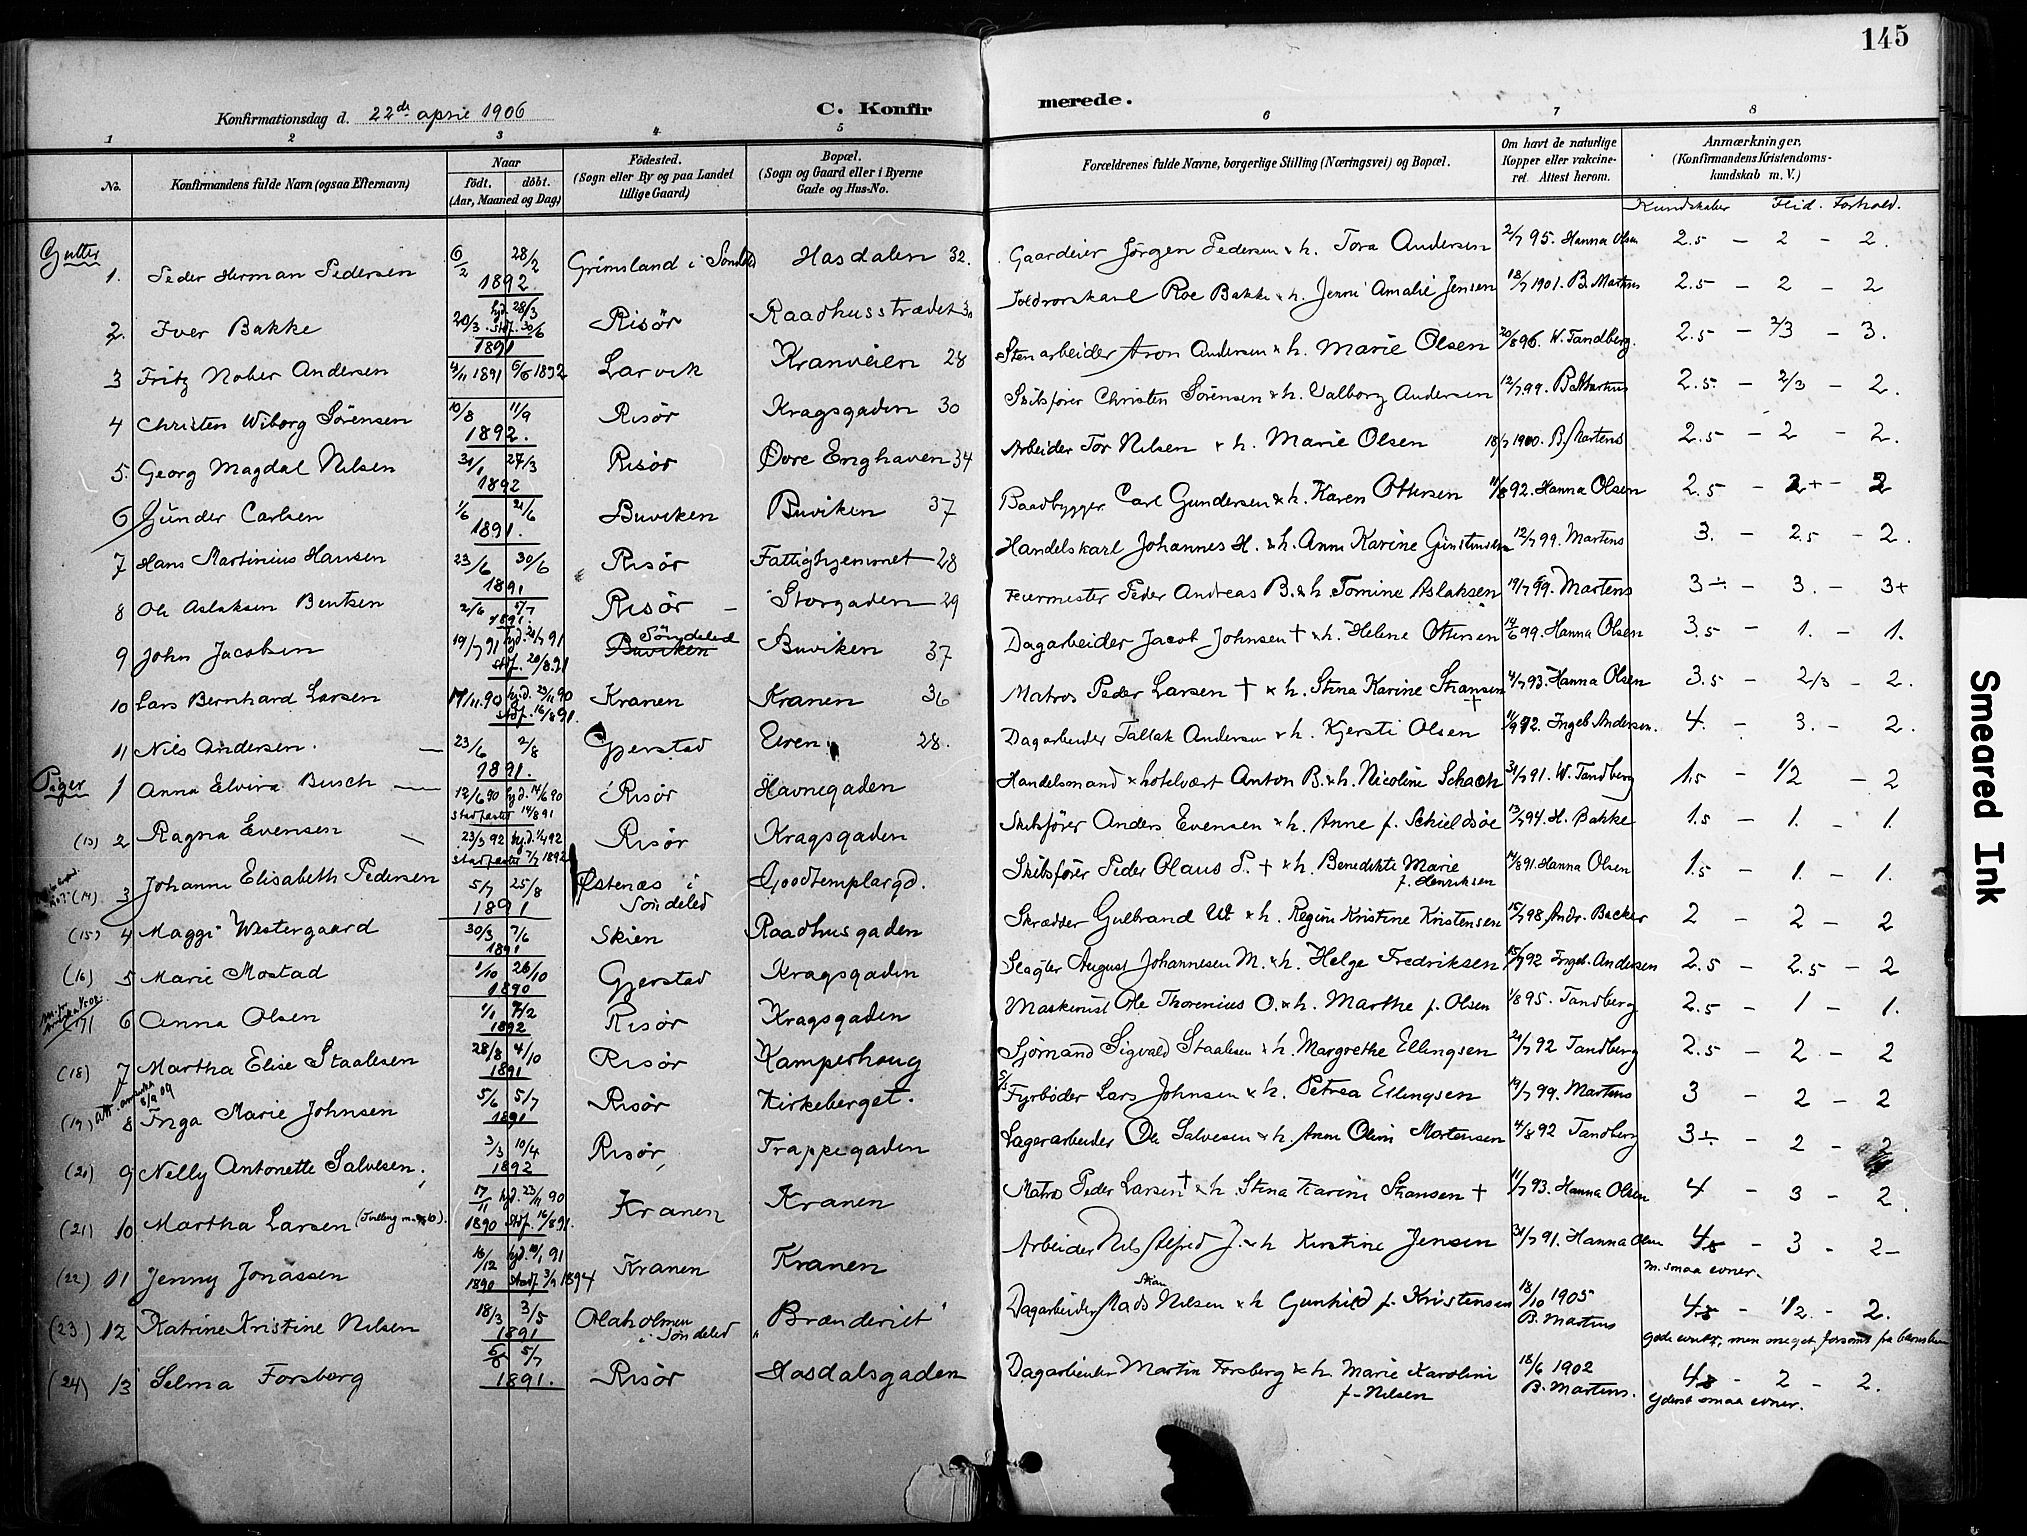 145
Konfirmationsdag d. 22de april 1906
C. Konfirmerede.
1 2 3 4 5 6 7 8
No.
Konfirmandens fulde Navn (ogsaa Efternavn)
Naar
födt. döbt.
(Aar, Maaned og Dag)
Födested.
(Sogn eller By og paa Landet
tillige Gaard)
Bopæl.
(Sogn og Gaard eller i Byerne
Gade og Hus-No.
Forældrenes fulde Navne, borgerlige Stilling (Næringsvei) og Bopæl.
Om havt de naturlige
Kopper eller vaccine-
ret. Attest herom.
Anmærkninger.
(Konfirmandens Kristendoms-
kundskab m. V.)
Kundskaber Flid. Forhold.
Gutter
1. Peder Herman Pedersen 6/2 28/2 1892 Grimsland i Hasdalen 32. Gaardeier Jörgen Pedersen & h. Tora Andersen 2/7 95. Hanna Olsen 2.5 - 2 - 2.
2. Iver Bakke 20/3 hjd. 28/3 stdf. 30/6 1891 Risør Raadhusstrædet 30 Roe Bakke & h. Jenni Amalie Jensen 18/7 1901. B. Martens 2.5 - 2 - 2
3 Fritz Nober Andersen 4/11 1891 6/6 1892 Larvik Kranveien 28 Stenarbeider Aron Andersen & h. Marie Olsen 20/8 96. W. Tandberg. 2.5 - 2/3 - 3.
4 Christen Wiborg Sörensen 10/8 11/9 1892. Risør Kragsgaden 30 Skibsfører Christen Sörensen & h. Valborg Andersen 12/7 99. B. Martens 2.5 - 2/3 - 2.
5. Georg Magdal Nilsen 31/1 27/3 1892 Risør Övre Enghaven 34 Arbeider Tor Nilsen & h. Marie Olsen 18/7 1900. B. Martens 2.5 - 2 - 2.
6 Gunder Carlsen 1/6 21/6 1891. Buviken Buviken 37 Baadbygger Carl Gundersen & h. Karen Ottersen 11/8 92. Hanna Olsen 2.5 - 2+ - 2
7 Hans Martinius Hansen 23/6 30/6 1891 Risør Fattighjemmet 28 Handelskarl Johannes H. & h. Anne Karine 12/7 99. Martens 3. - 2.5 - 2.
8 Ole Aslaksen Bentsen 2/6 5/7 1891. Risør - Storgaden 29 Feiermester Peder Andreas B. & h. Tomine Aslaksen 19/7 99. Martens 3÷ - 3. - 3+
9 John Jacobsen 19/7 91 hjd. 21/7 91 stdf. 20/8 91 Söndeled Buviken Buviken 37 Dagarbeider Jacob Johnsen † & h. Helene Ottersen 14/6 99. Hanna Olsen 3.5 - 1. - 1.
10 Lars Bernhard Larsen 17/11 90 hjd. 23/11 90 stdf. 16/8 91. Kranen Kranen 36 Matros Peder Larsen † & h. Stina Karine Skansen † 4/7 93. Hanna Olsen 3.5 - 2/3 - 2.
11 Nils Andersen. 23/6 2/8 1891. Gjerstad Enen 28. Dagarbeider Tallak Andersen & h. Kjersti Olsen 11/9 92. Ingeb. Andersen. 4. - 3. - 2.
Piger
1 Anna Elvira Busch 12/6 90 hjd. 14/6 90 stadfæstet 14/8 91 Risør Havnegaden Handelsmand & hotelvært Anton B. & h. Nicoline Schach 31/7 91. W. Tandberg 1.5 - 1/2 - 2
(13) 2 Ragna Evensen 23/3 92 hjd. 1/4 92 stadfæstet 7/7 1892 Risør Kragsgaden Skibsfører Anders Evensen & h. Anne f. Schieldsöe 13/7 94. H. Bakke 1.5 - 1. - 1.
(14) 3 Johanne Elisabeth Pedersen 5/7 25/8 1891 Østenæs i Söndeled Goodtemplargd. Skibsfører Peder Olaus P. † & h. Benedikte Marie f. Henriksen 14/8 91. Hanna Olsen 1.5 - 1. - 1.
(15) 4 Maggi Westergaard 30/3 7/6 1891 Skien Raadhusgaden Skrædder Gulbrand W. & h. Regine Kristine Kristensen 15/7 98. Andr. Backer 2 - 2 - 2
(16) 5 Marie Mostad 1/10 26/10 1890 Gjerstad Kragsgaden Slagter August Johannesen M. & h. Helge Fredriksen 15/7 92 Ingeb. Andersen 2.5 - 2.5 - 2
(17) 6 Anna Olsen 1/1 /2 1892 Risør Kragsgaden Maskinist Ole Thorenius O. & h. Marthe f. Olsen 1/8 95. Tandberg 2.5 - 1 - 1.
(18) 7 Martha Elise Staalesen 28/8 4/10 1891 Risør Kamperhoug Sjömand Sigvald Staalesen & h. Margrethe Ellingsen 21/7 92 Tandberg 2.5 - 2 - 2
(19) 8 Inga Marie Johnsen 5/6 5/7 1891 Risør Kirkeberget. Fyrböder Lars Johnsen & h. Petrea Ellingsen 19/7 99. Martens 3 - 2 - 2
(20) 9 Nelly Antonette Salvesen. 3/3 10/4 1892 Risør Trappegaden Lagerarbeider Ole Salvesen & h. Anne Oline Mortensen 4/8 92 Tandberg 3÷ - 2 - 2
(21) 10 Martha Larsen (Tvilling m. 10). 17/11 1890 hjd. 23/11 90 stdf. 16/8 91. Kranen Kranen Matros Peder Larsen † & h. Stina Karine Skansen † 11/7 93. Hanna Olsen 4 - 3 - 2.
(22) 11 Jenny Jonassen 16/12 1890 hjd. 10/1 91 stadf. 3/9 1894 Kranen Kranen Arbeider Nils Alfred J. & h. Kirstine Jensen 31/7 91. Hanna Olsen 4.5 - 3 - 2-
m. smaa evner.
(23.) 12 Katrine Kristine Nilsen 18/3 3/5 1891 Olaholmen i Söndeled Brænderiet Dagarbeider Mads Nilsen & h. Gunhild f. Kristensen 18/10 1905 B. Martens 4.5 - 1/2 - 2.
gode evner, men meget forsømt fra
(24) 13 Selma Forsberg 6/6 5/7 1891. Risør Hasdalsgaden Dagarbeider Martin Forsberg & h. Marie Karoline f. Nilsen 18/6 1902 B. Martens. 4.5 - 2 - 2.
yderst smaa evner.
Smeared Ink